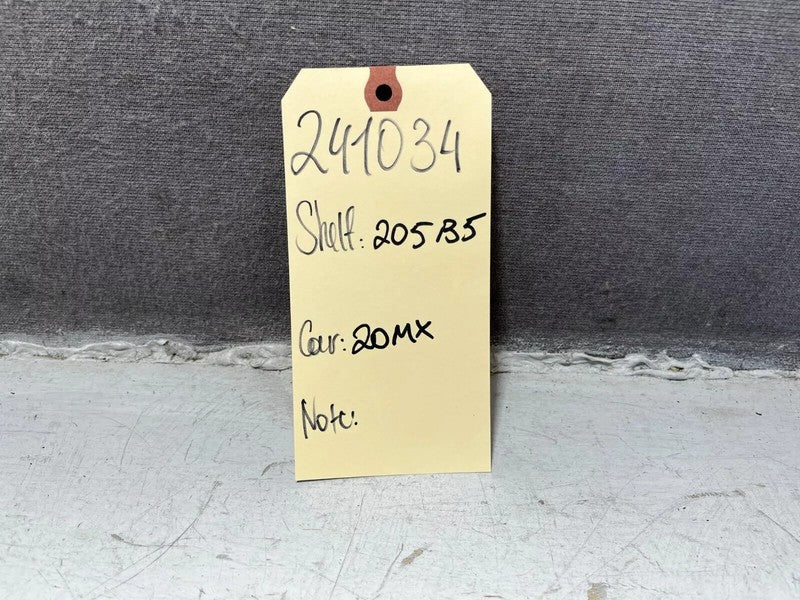 241034
Shelf: 205B5
Car: 20MX
Note: